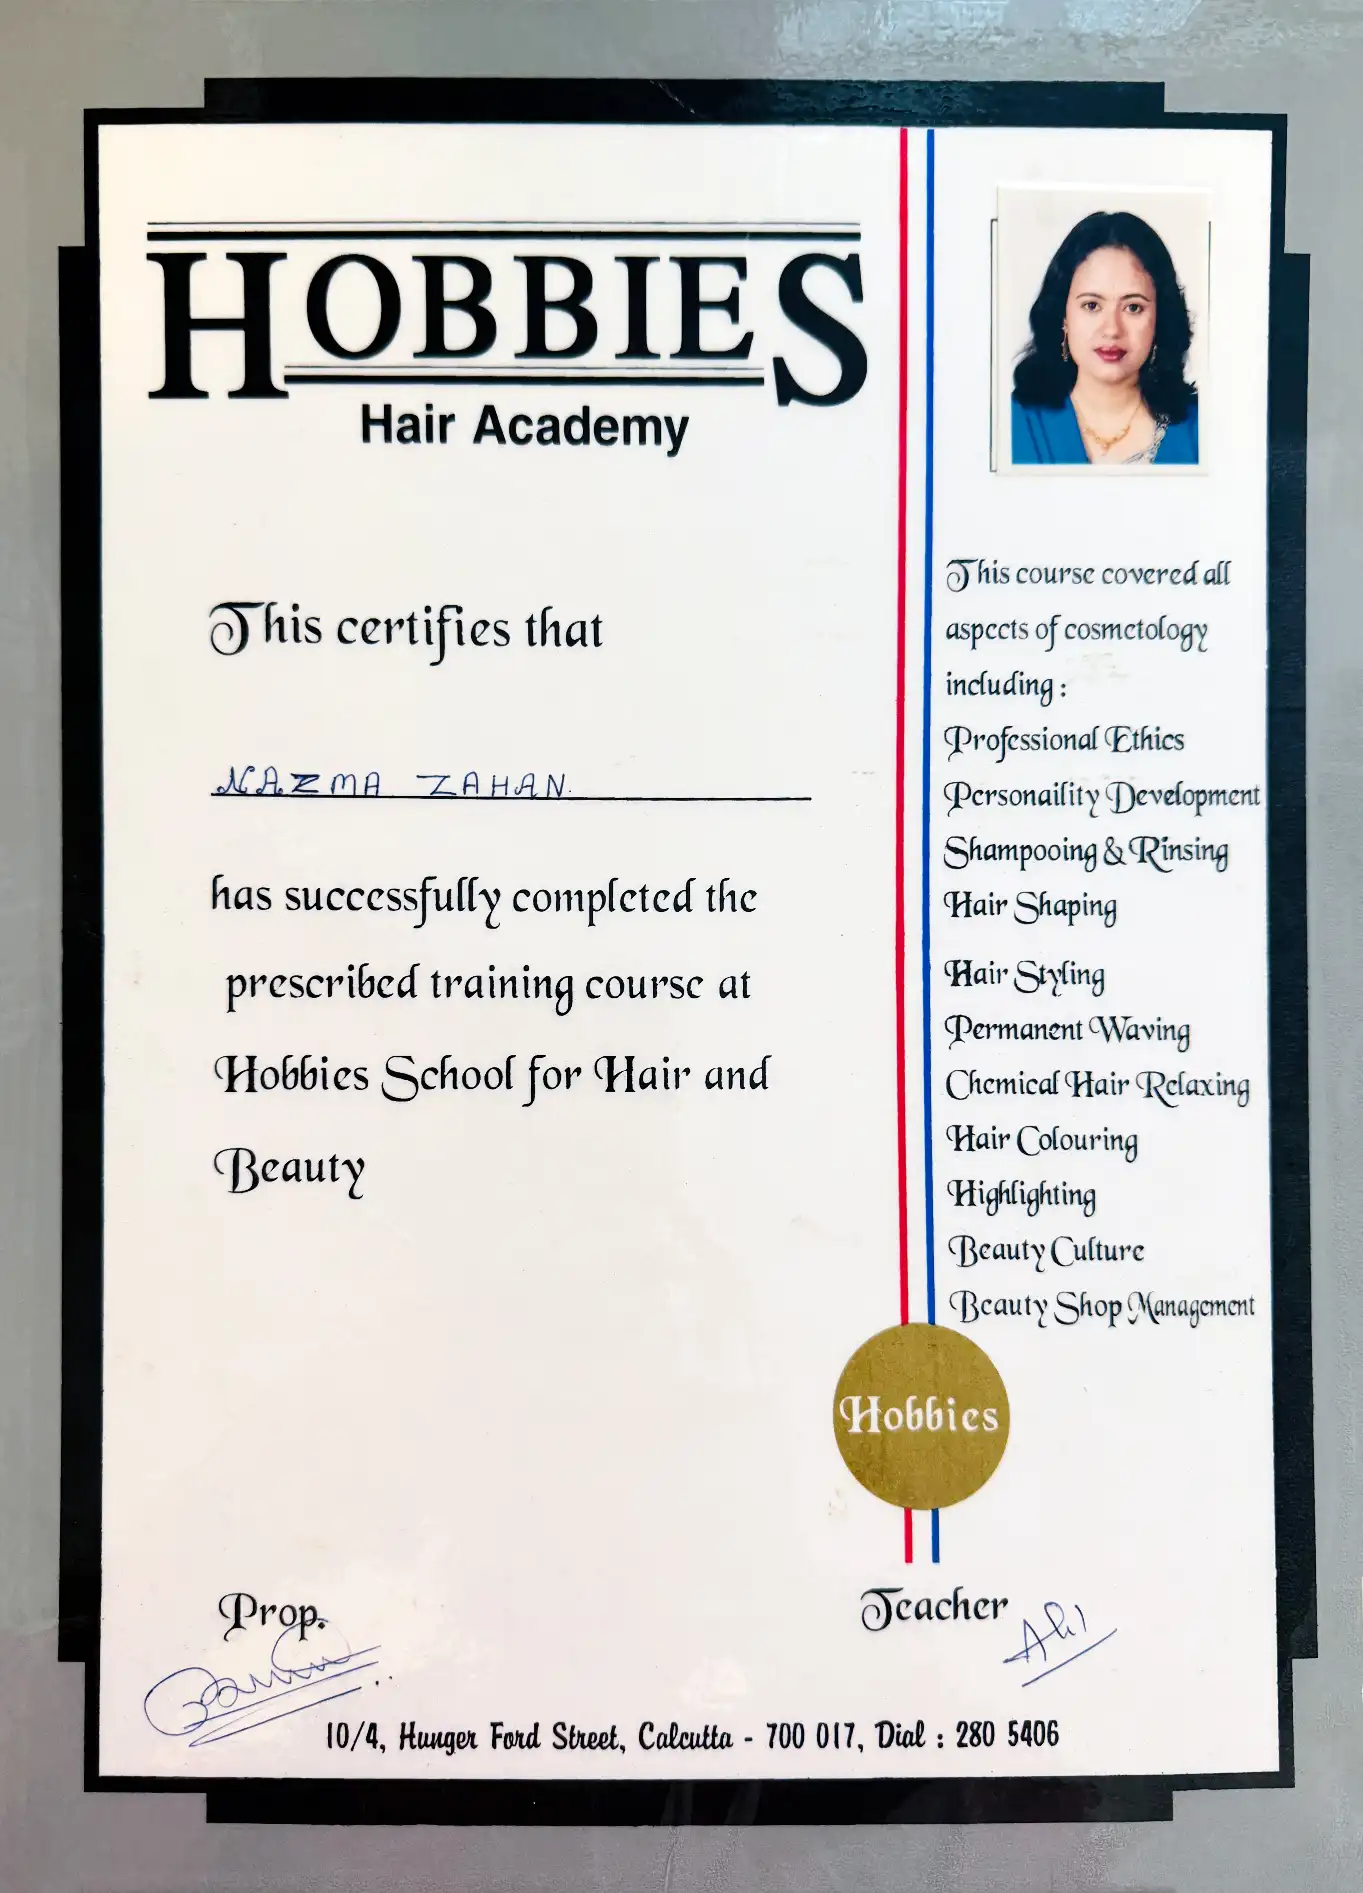 HOBBIES
Hair Academy
This certifies that
NAZMA ZAHAN.
has successfully completed the
prescribed training course at
Hobbies School for Hair and
Beauty
This course covered all
aspects of cosmetology
including :
Professional Ethics
Personaility Development
Shampooing & Rinsing
Hair Shaping
Hair Styling
Permanent Waving
Chemical Hair Relaxing
Hair Colouring
Highlighting
Beauty Culture
Beauty Shop Management
Hobbies
Prop.
Teacher
10/4, Hunger Ford Street, Calcutta - 700 017, Dial : 280 5406